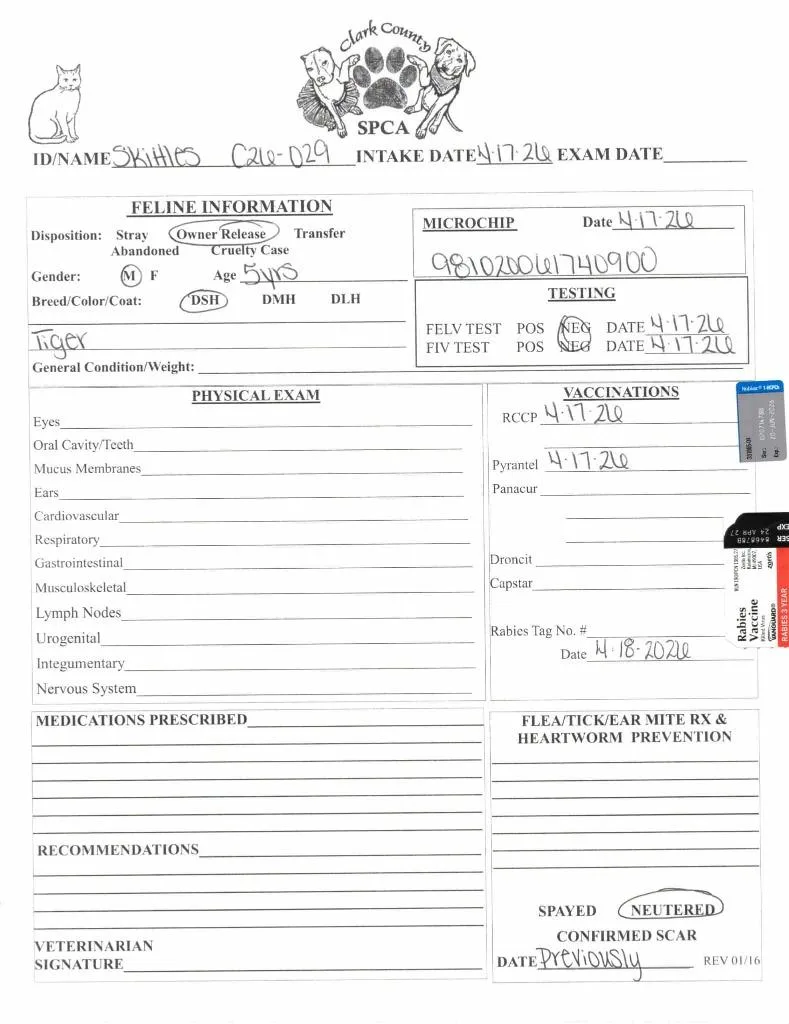 Clark County
SPCA
ID/NAME Skittles C26-029 INTAKE DATE 4·17·26 EXAM DATE
FELINE INFORMATION
Disposition: Stray Owner Release Transfer
Abandoned Cruelty Case
Gender: M F Age 5yrs
Breed/Color/Coat: DSH DMH DLH
Tiger
General Condition/Weight:
MICROCHIP Date 4·17·26
981020061740900
TESTING
FELV TEST POS NEG DATE 4·17·26
FIV TEST POS NEG DATE 4·17·26
PHYSICAL EXAM
Eyes
Oral Cavity/Teeth
Mucus Membranes
Ears
Cardiovascular
Respiratory
Gastrointestinal
Musculoskeletal
Lymph Nodes
Urogenital
Integumentary
Nervous System
VACCINATIONS
RCCP 4·17·26
Pyrantel 4·17·26
Panacur
Droncit
Capstar
Rabies Tag No. #
Date 4·18·2026
Nobivac® 1-HCPCh
Ser.:
Exp.: 20-JUN-2026
SER 846878B
EXP 24 APR 27
Rabies
Vaccine
Killed Virus
VANGUARD®
zoetis
RABIES 3 YEAR
MEDICATIONS PRESCRIBED
RECOMMENDATIONS
VETERINARIAN
SIGNATURE
FLEA/TICK/EAR MITE RX &
HEARTWORM PREVENTION
SPAYED NEUTERED
CONFIRMED SCAR
DATE Previously REV 01/16